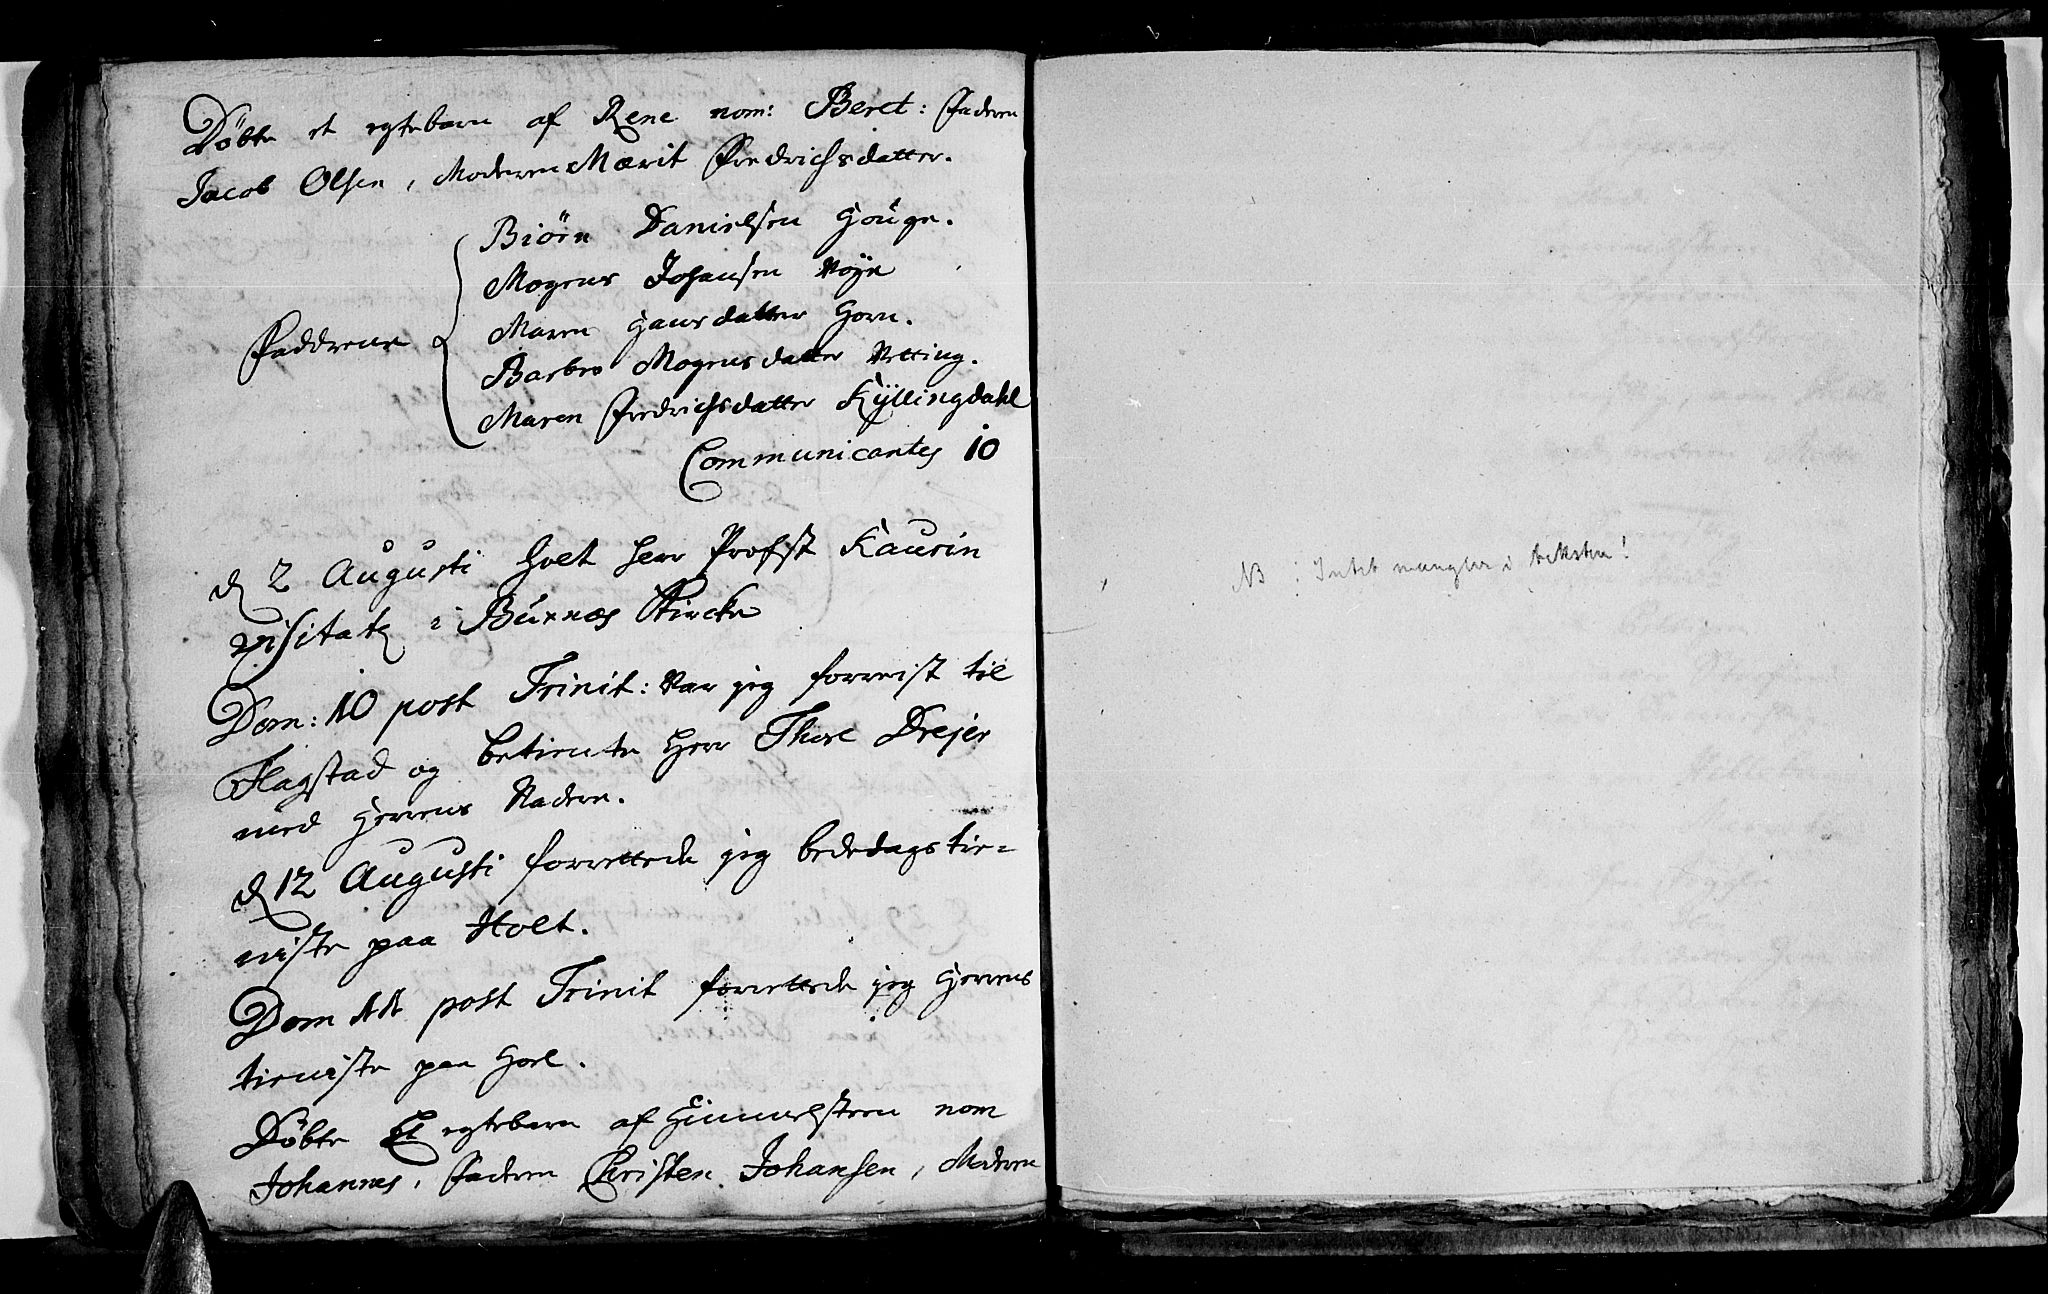 Døbte et egtebarn af Rene nom: Beret: Faderen
Jacob Olsen, Moderen Mærit Fredrichsdatter.
Biörn Danielsen Houge.
Mogens Johansen Røye
Maren Hansdatter Horn.
Fadderene
Barbro Mogensdatter Vetting.
Maren Fredrichsdatter Kÿllingdahl
Communicantes 10
d 2 Augusti holt Herr Profst Kaurin
visitatz i Buxnæs Kircke
Dom: 10 post Trinit: Var jeg forreist til
Flagstad og betiente Herr Thue Drejer
med Herrens Nadere.
d 12 Augusti forrettede jeg bededags tie=
niste paa Holt.
Dom 11 post Trinit forrettede jeg Herrens
tieniste paa Hoel.
Døbte Et egtebarn af Himmelsteen nom
Johannes, Faderen Christen Johansen, Moderen
NB: Intet mangler i teksten!